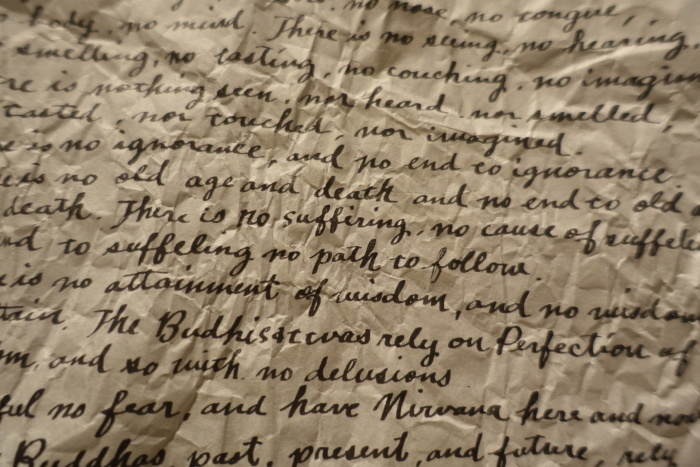 no nose, no tongue,
body, no mind. There is no seeing, no hearing
smelling, no tasting, no touching, no imagin
re is nothing seen, nor heard nor smelled,
tasted, nor touched, nor imagined.
is no ignorance, and no end to ignorance
is no old age and death and no end to old
death. There is no suffering, no cause of suffe
nd to suffeling no path to follow.
is no attainment of wisdom, and no wisdom
tain. The Budhisstwas rely on Perfection of
m, and so with no delusions
ful no fear, and have Nirvana here and now
Buddhas past, present, and future, rely